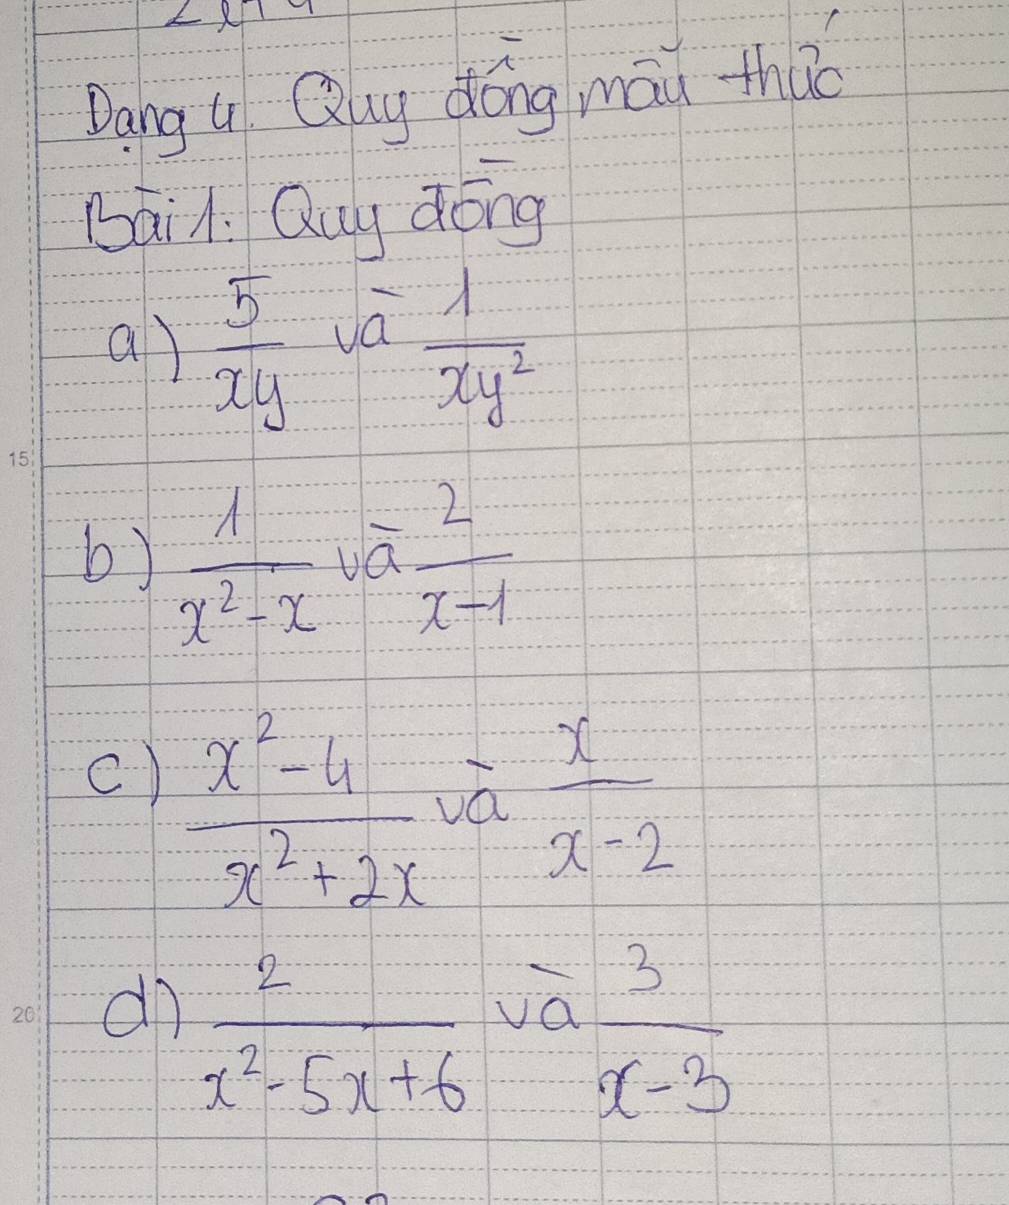 Dạng 4. Quy đồng mẫu thức
Bài 1: Quy đồng
a) 5/xy và 1/xy²
15
b) 1/x²-x và 2/x-1
c) x²-4/x²+2x và x/x-2
20
d) 2/x²-5x+6 và 3/x-3